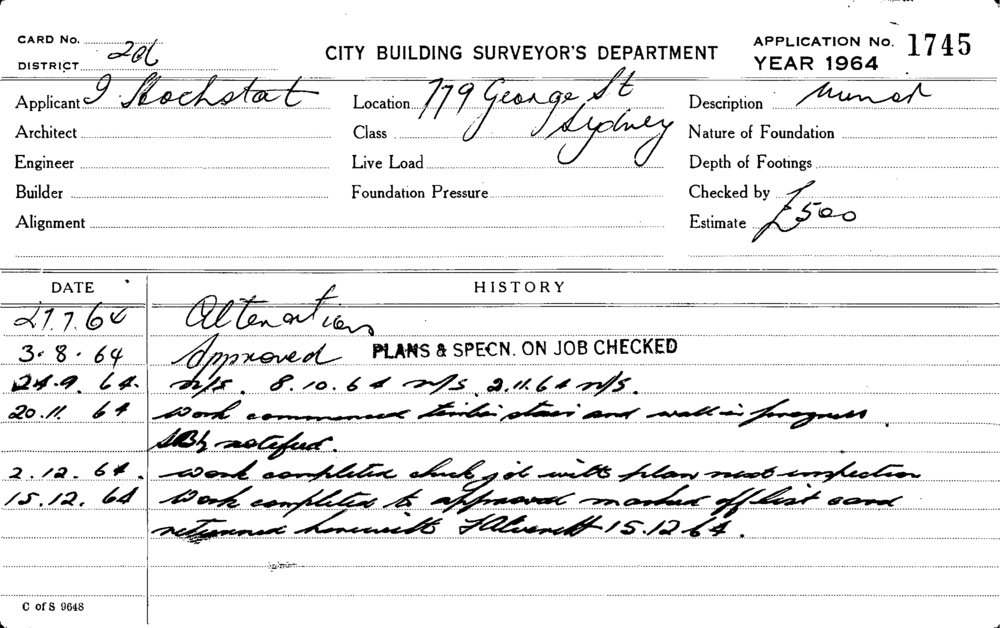 CARD No.
DISTRICT 2d
CITY BUILDING SURVEYOR'S DEPARTMENT
APPLICATION No. 1745
YEAR 1964
Applicant I Hochstat
Location 779 George St
Sydney
Description Minor
Architect
Class
Nature of Foundation
Engineer
Live Load
Depth of Footings
Builder
Foundation Pressure
Checked by
Alignment
Estimate £500
DATE HISTORY
27.7.64 Alterations
3.8.64 Approved PLANS & SPECN. ON JOB CHECKED
24.9.64. n/s. 8.10.64 n/s. 2.11.64 n/s.
20.11.64 Work commenced timber stair and wall in progress.
notified.
2.12.64. Work completed check job with plan next inspection
15.12.64 Work completed to approval marked off list card
returned herewith 15.12.64.
C of S 9648